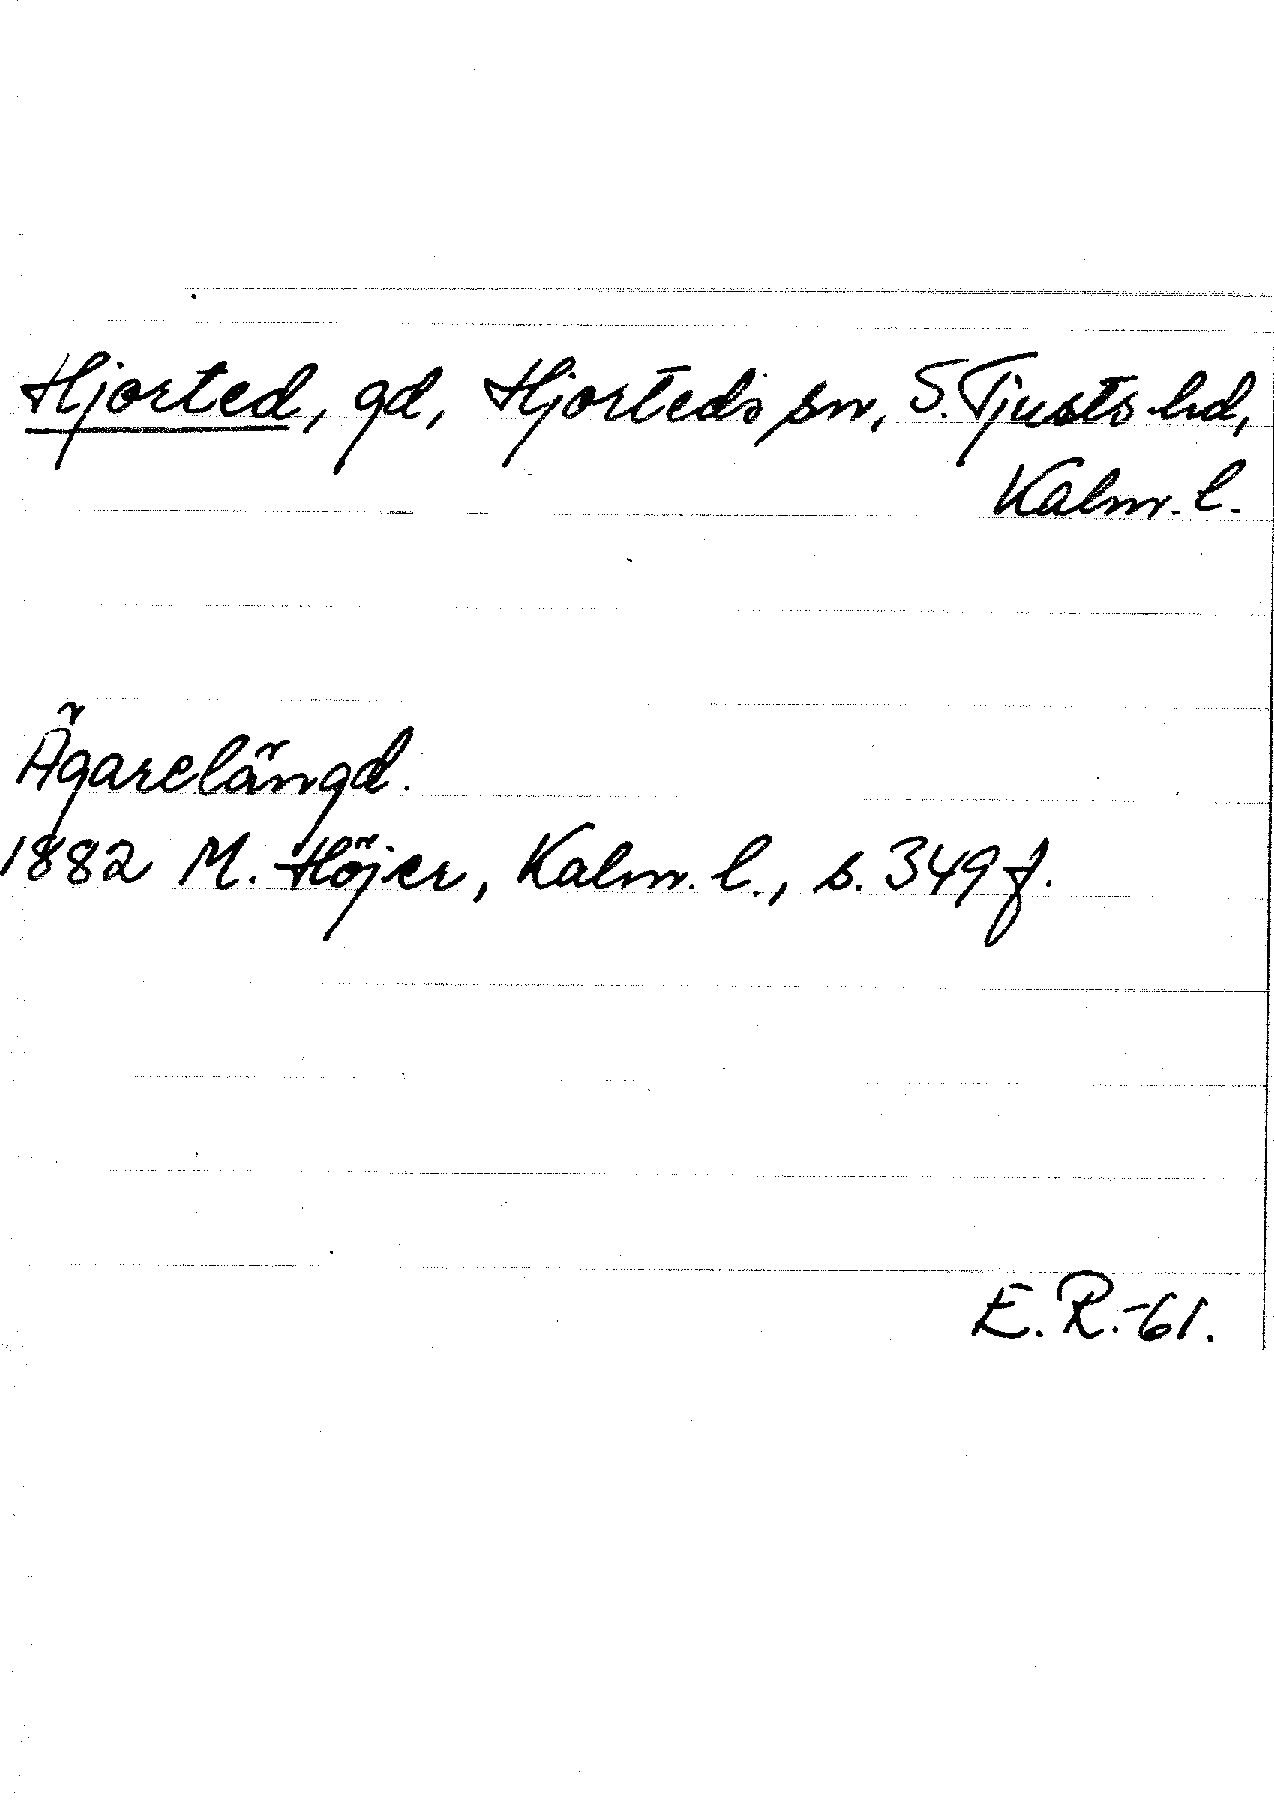 Hjorted, gd, Hjorteds sn, S. Tjusts hd,
Kalm. l.
Ägarelängd.
1882 M. Höjer, Kalm. l., s. 349 f.
E. R. -61.